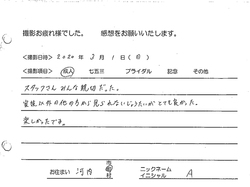 撮影お疲れ様でした。 感想をお願いいたします。
＜撮影日時＞ 2020年 3月 1日（日）
＜撮影項目＞ 成人 七五三 ブライダル 記念 その他
スタッフさんみんな親切だった。
家族以外の他の方から見られないじょうたいがとても良かった。
楽しかったです。
お住まい 河内 市町村 ニックネーム イニシャル A